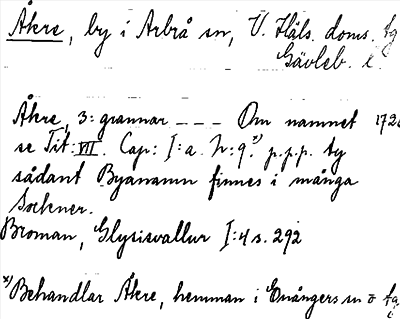 Åkre, by i Arbrå sn, V. Häls. doms. tg
Gävleb. l.
Åkre, 3: grannar - - - Om namnet 172
se Tit: VII. Cap: I: a. N: 9.x) p.p.p. ty
sådant Byanamn finnes i många
Sockner.
Broman, Glysisvallur I:4 s. 292
x) Behandlar Åkre, hemman i Enångers sn